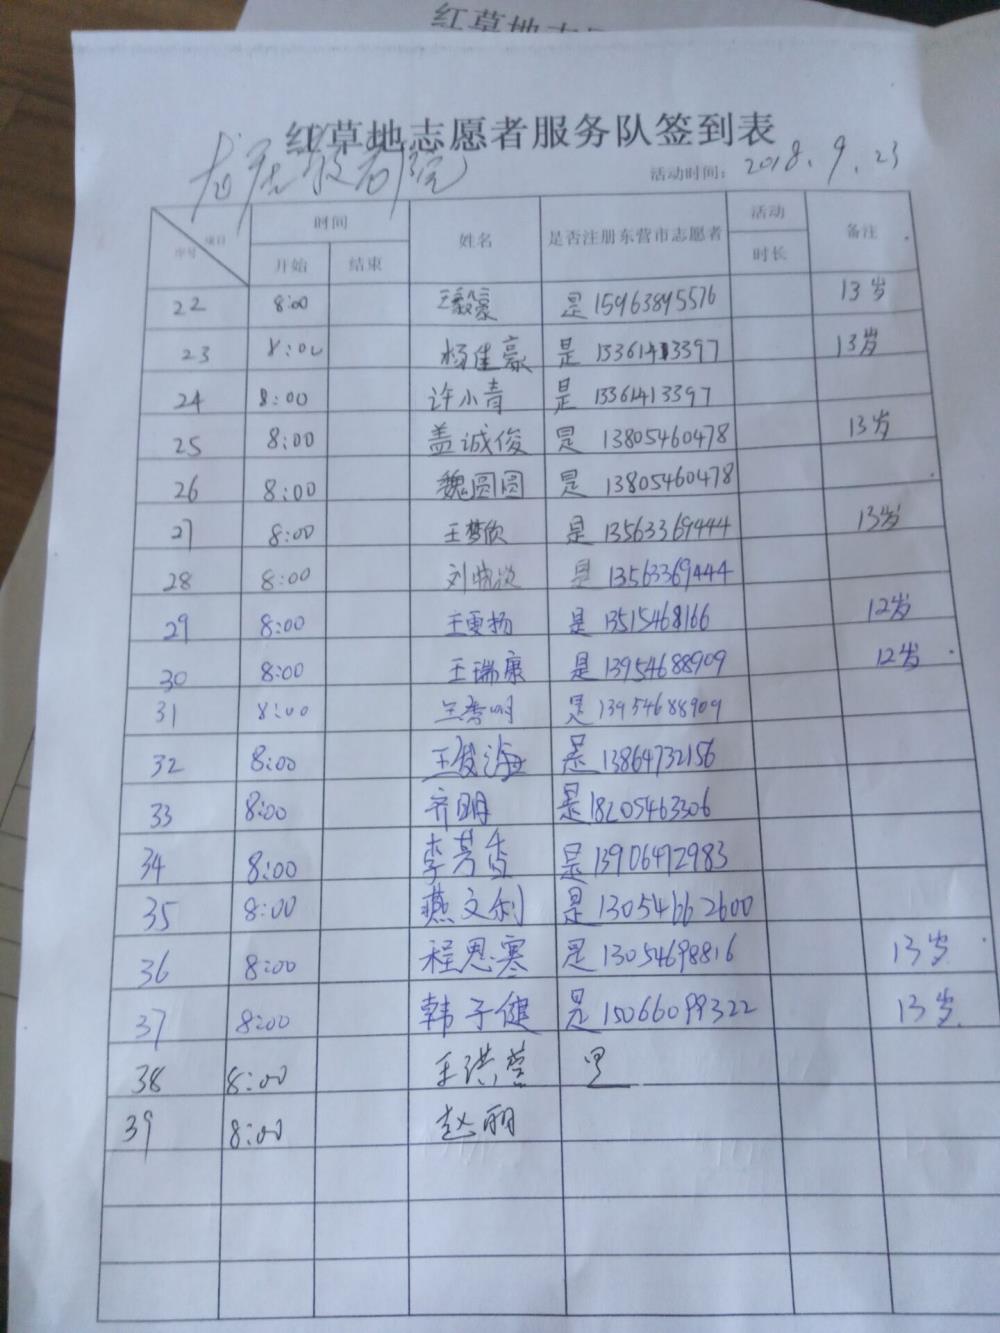 红草地志愿者服务队签到表
活动时间: 2018.9.23
项目 序号 时间 姓名 是否注册东营市志愿者 活动 备注
开始 结束 时长
22 8:00 王毅豪 是 15963895576 13岁
23 8:00 杨佳豪 是 13361413397 13岁
24 8:00 许小青 是 13361413397
25 8:00 盖诚俊 是 13805460478 13岁
26 8:00 魏圆圆 是 13805460478
27 8:00 王梦欣 是 13563369444 13岁
28 8:00 刘晓 是 13563369444
29 8:00 王更扬 是 13515468166 12岁
30 8:00 王瑞康 是 13954688909 12岁
31 8:00 兰秀明 是 13954688909
32 8:00 王俊海 是 13864732156
33 8:00 齐明 是 18205463306
34 8:00 李芳香 是 13906472983
35 8:00 燕文利 是 13054662600
36 8:00 程思寒 是 13054698816 13岁
37 8:00 韩子健 是 15066099322 13岁
38 8:00 王洪莹 是
39 8:00 赵丽